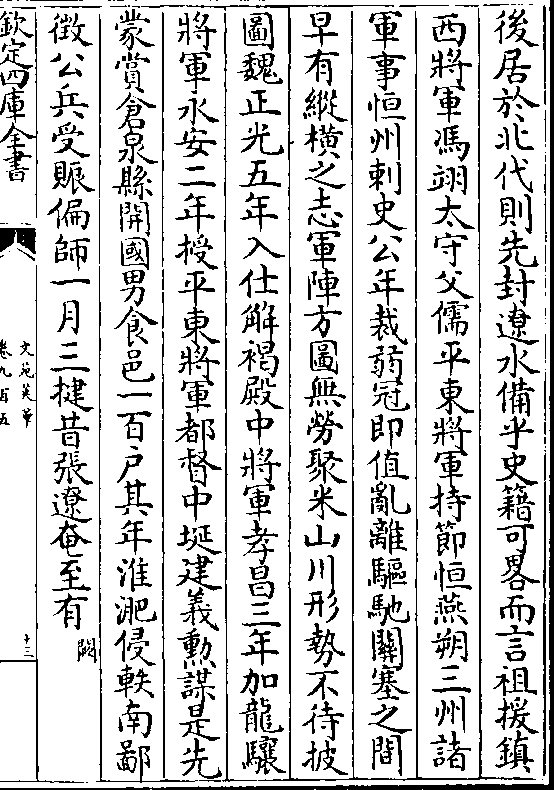 後居於北代則先封遼水備乎史籍可畧而言祖援鎮
西將軍馮翊太守父儒平東將軍持節恒燕朔三州諸
軍事恒州刺史公年裁弱冠即值亂離驅馳關塞之間
早有縱橫之志軍陣方圖無勞聚米山川形勢不待披
圖魏正光五年入仕解褐殿中將軍孝昌三年加龍驤
將軍永安二年授平東將軍都督中埏建義勲謀是先
蒙賞倉泉縣開國男食邑一百户其年淮淝侵軼南鄙
徵公兵受賑偏師一月三捷昔張遼奄至有闕
欽定四庫全書
文苑英華
卷九百五
十三